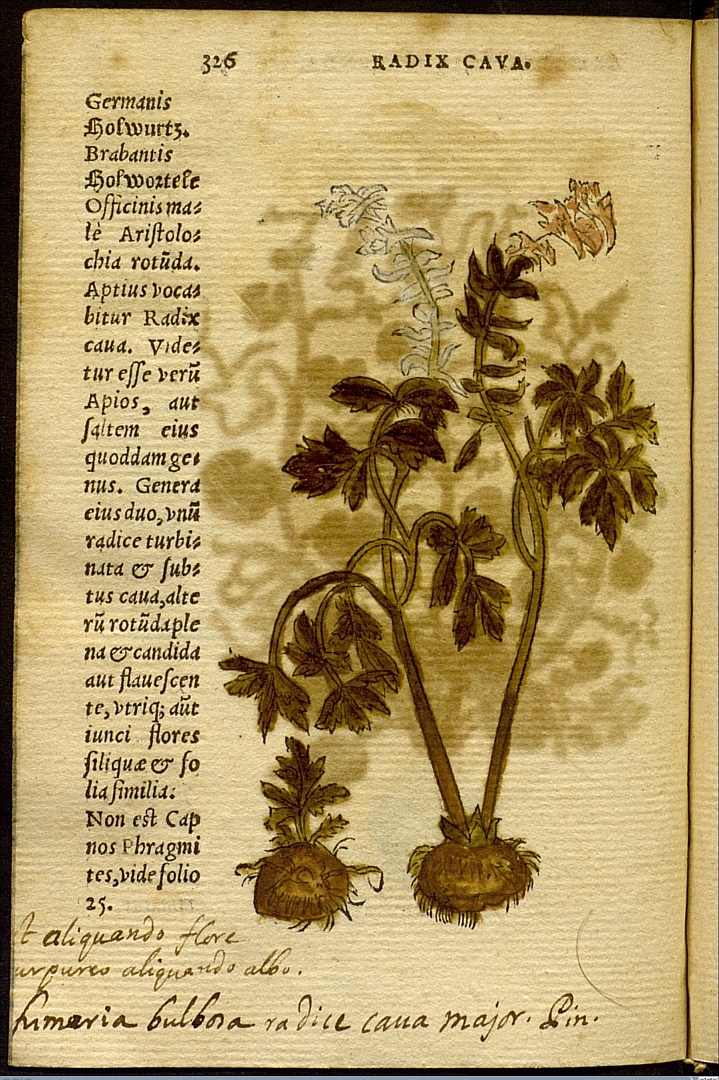 326 RADIX CAVA.
Germanis
Holwurtz.
Brabantis
Holwortele
Officinis ma⸗
lè Ariſtolo⸗
chia rotũda.
Aptius voca⸗
bitur Radix
caua. Vide⸗
tur eſſe verũ
Apios, aut
ſaltem eius
quoddam ge⸗
nus. Genera
eius duo, vnũ
radice turbi⸗
nata & ſub⸗
tus caua, alte
rũ rotũda ple
na & candida
aut flaueſcen
te, vtriq; aũt
iunci flores
ſiliquæ & fo
lia ſimilia:
Non eſt Cap
nos Phragmi
tes, vide folio
25.
t aliquando flore
urpureo aliquando albo.
fumaria bulbosa radice caua major. Pin.